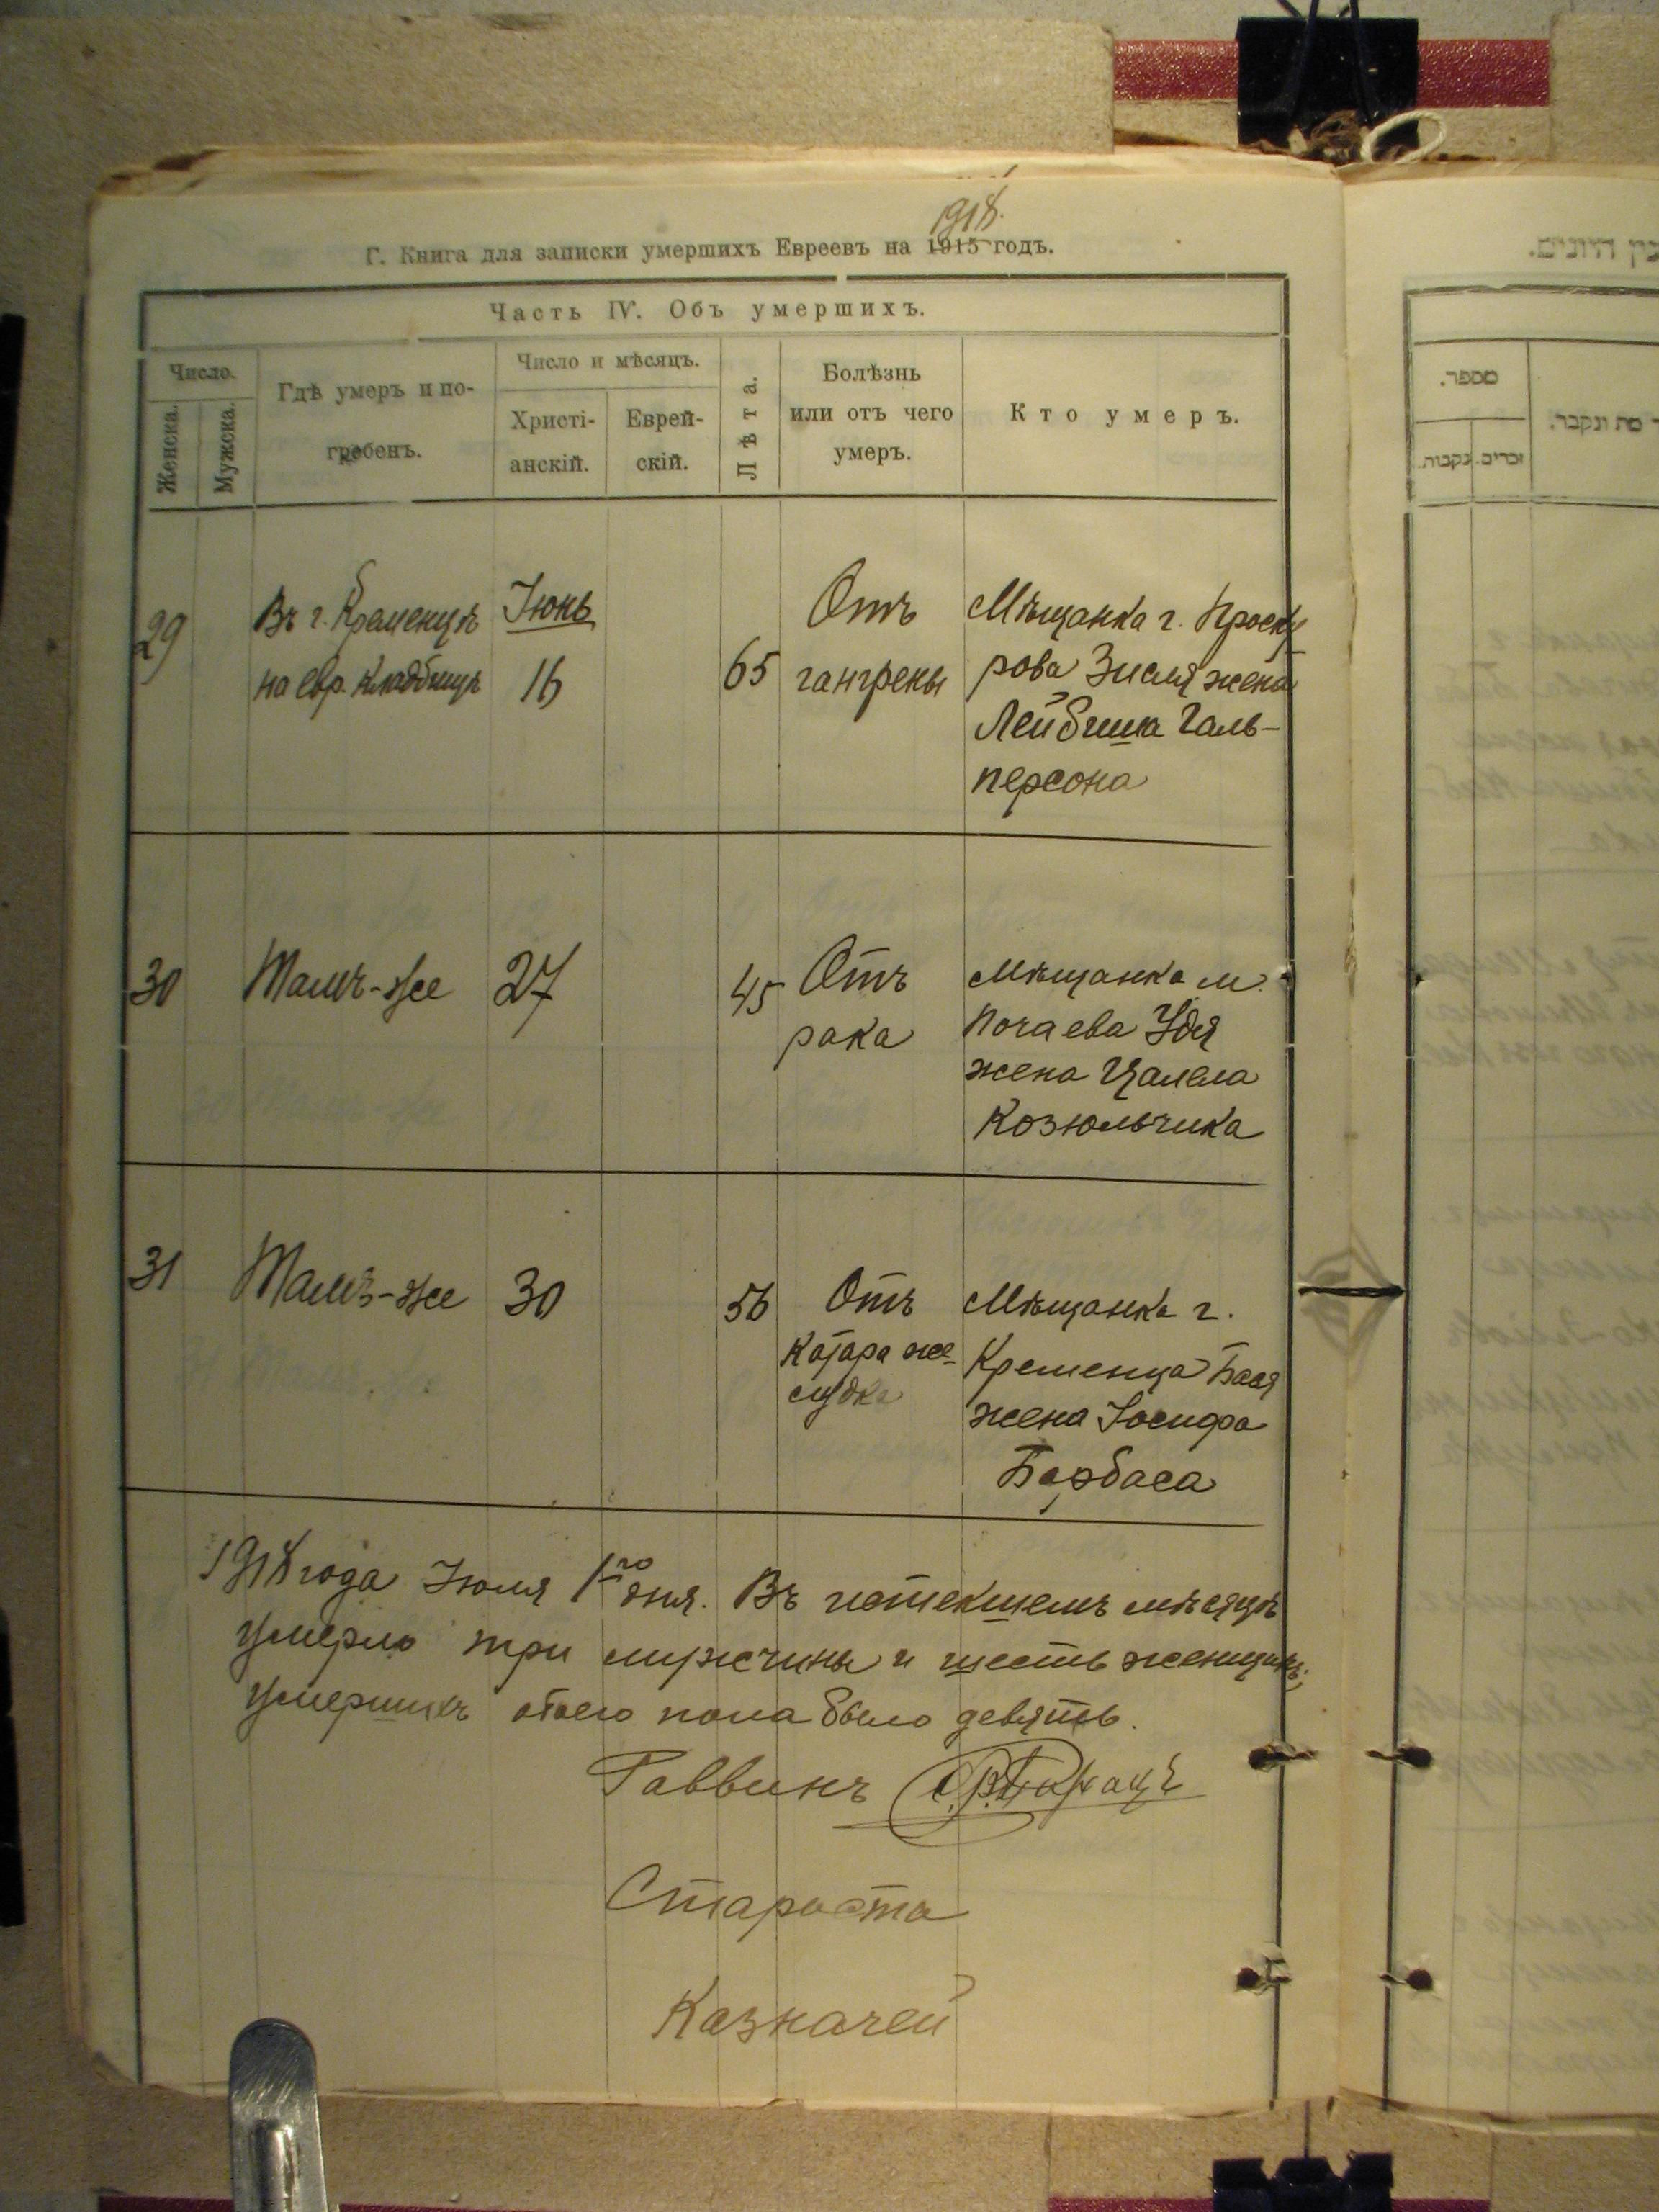 1918.
Г. Книга для записки умершихъ Евреевъ на 1915 годъ.
Часть IV. Объ умершихъ.
Число.
Женска.
Мужска.
Гдѣ умеръ и по-
гребенъ.
Число и мѣсяцъ.
Христі-
анскій.
Еврей-
скій.
Лѣта.
Болѣзнь
или отъ чего
умеръ.
Кто умеръ.
29
Въ г. Кременцѣ
на евр. кладбищѣ
Іюнь
16
65
Отъ
гангрены
Мѣщанка г. Проску
рова Зисля жена
Лейбиша Галь-
персона
30
Тамъ-же
27
45
Отъ
рака
Мѣщанка м.
Почаева Удя
жена Цалела
Козюльчика
31
Тамъ-же
30
56
Отъ
катара же-
лудка
Мѣщанка г.
Кременца Бася
жена Іосифа
Барбаса
1918 года Іюля 1го дня. Въ истекшемъ мѣсяцѣ
умерло три мужчины и шесть женщинъ;
умершихъ обоего пола было девять.
Раввинъ
Староста
Казначей
מספר.
זכרים.
נקבות.
מת ונקבר.